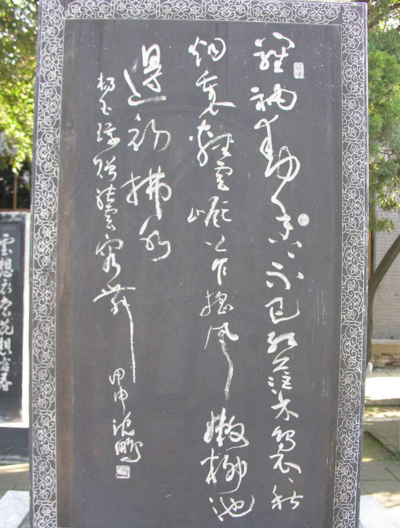 羅袖動香香不已紅蕖裊裊秋
烟裏輕雲嶺上乍搖風嫩柳池
邊初拂水
楊玉環贈張雲容舞
甲申沈鵬
雲想衣裳花想容春